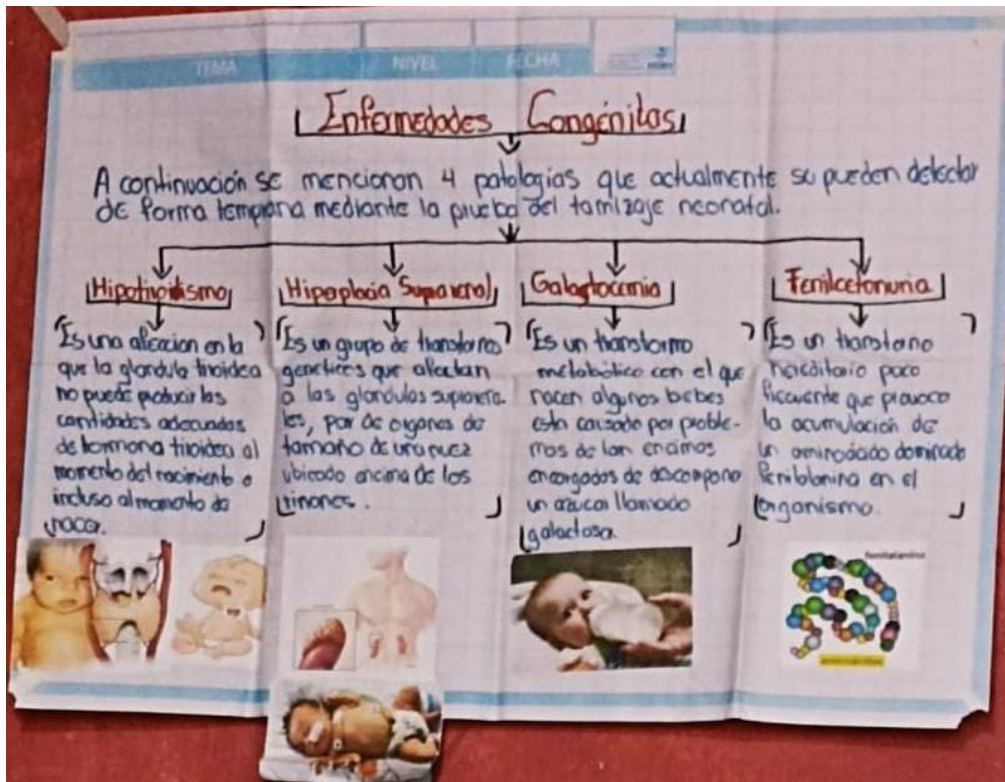 TEMA NIVEL FECHA
Enfermedades Congénitas
A continuación se mencionan 4 patologías que actualmente su pueden detectar
de forma temprana mediante la prueba del tamizaje neonatal.
Hipotiroidismo
Es una aficacion en la
que la glandula tiroidea
no puede producir las
cantidades adecuadas
de hormona tiroidea al
momento del nacimiento o
incluso al momento de
nacer.
Hiperplacia Suprarenal
Es un grupo de transtornos
geneticos que afectan
a las glandulas suprarena
les, par de organos de
tamaño de una nuez
ubicado encima de los
rinones.
Galactocemia
Es un transtorno
metabótico con el que
nacen algunos bebes
esta causado por proble-
mas de lan encimas
encargados de descompono
un azucar llamado
galactosa.
Fenilcetonuria
Es un transtorno
hereditario poco
ficuente que provoca
la acumulación de
un aminoàcido dominado
fenilalanina en el
organismo.
fenilalanina